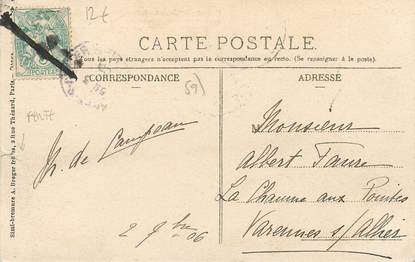 12€
CARTE POSTALE.
Tous les pays étrangers n'acceptent pas la correspondance au recto. (Se renseigner à la poste).
CORRESPONDANCE
ADRESSE
59
FENTE
Simi-bromure A. Breger frères, 9 Rue Thénard, Paris
Monsieur
Albert Faure
H. de
La Chaume aux Pointes
Varennes s/ Allier
2 9bre 06